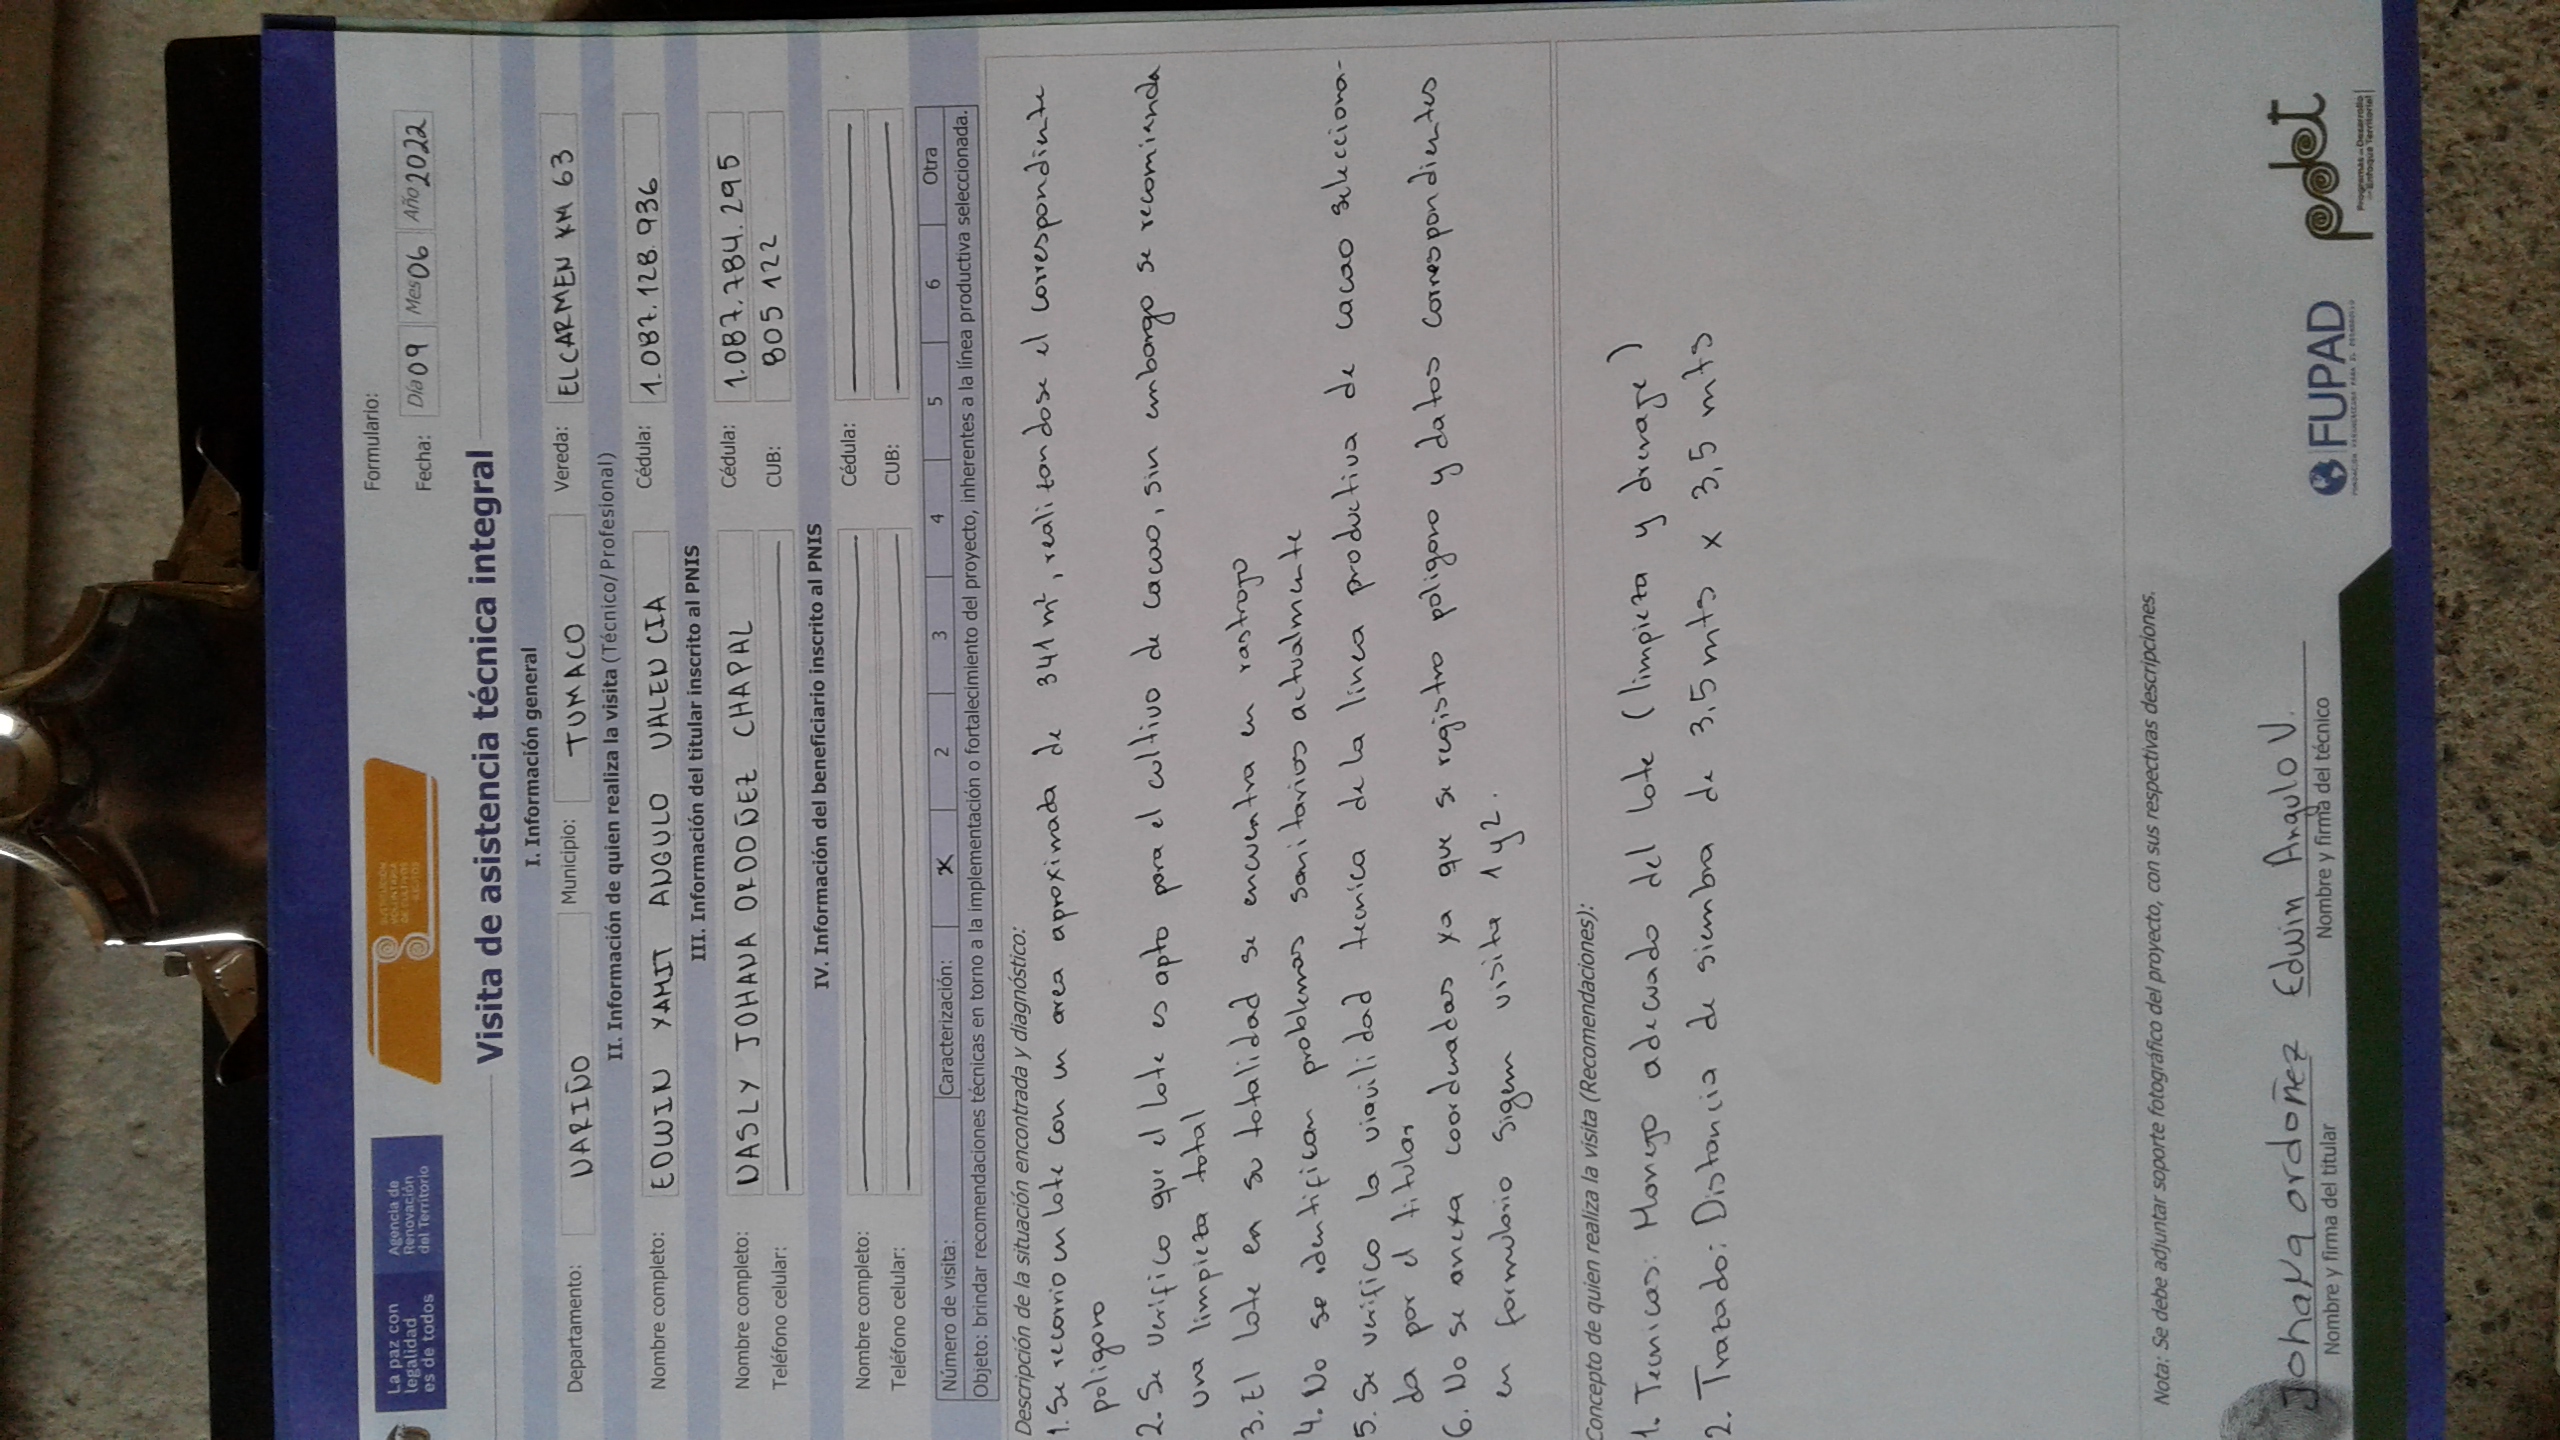 La paz con
legalidad
es de todos
Agencia de
Renovación
del Territorio
SUSTITUCIÓN
VOLUNTARIA
DE CULTIVOS
ILÍCITOS
Formulario:
Fecha: Día 09 Mes 06 Año 2022
Visita de asistencia técnica integral
I. Información general
Departamento: NARIÑO Municipio: TUMACO Vereda: EL CARMEN KM 63
II. Información de quien realiza la visita (Técnico/Profesional)
Nombre completo: EDWIN YAMIT ANGULO VALENCIA Cédula: 1.087.128.936
III. Información del titular inscrito al PNIS
Nombre completo: NASLY JOHANA ORDOÑEZ CHAPAL Cédula: 1.087.784.295
Teléfono celular: CUB: 805122
IV. Información del beneficiario inscrito al PNIS
Nombre completo: Cédula:
Teléfono celular: CUB:
Número de visita: Caracterización: X 2 3 4 5 6 Otra
Objeto: brindar recomendaciones técnicas en torno a la implementación o fortalecimiento del proyecto, inherentes a la línea productiva seleccionada.
Descripción de la situación encontrada y diagnóstico:
1. Se recorrio un lote con un area aproximada de 341 m², realitandose el correspondiente
poligono
2. Se verifico que el lote es apto para el cultivo de cacao, sin embargo se recomienda
una limpieza total
3. El lote en su totalidad se encuentra en rastrojo
4. No se identifican problemas sanitarios actualmente
5. Se verifico la viavilidad tecnica de la linea productiva de cacao selecciona-
da por el titular
6. No se anexa coordenadas ya que se registro poligono y datos correspondientes
en formulario sigem visita 1 y 2.
Concepto de quien realiza la visita (Recomendaciones):
1. Tecnicas: Manejo adecuado del lote (limpieza y drenaje)
2. Trazado: Distancia de siembra de 3,5 mts x 3,5 mts
Nota: Se debe adjuntar soporte fotográfico del proyecto, con sus respectivas descripciones.
Johana ordoñez Edwin Angulo V.
Nombre y firma del titular Nombre y firma del técnico
FUPAD
FUNDACIÓN PANAMERICANA PARA EL DESARROLLO
pdet
Programas de Desarrollo
con Enfoque Territorial